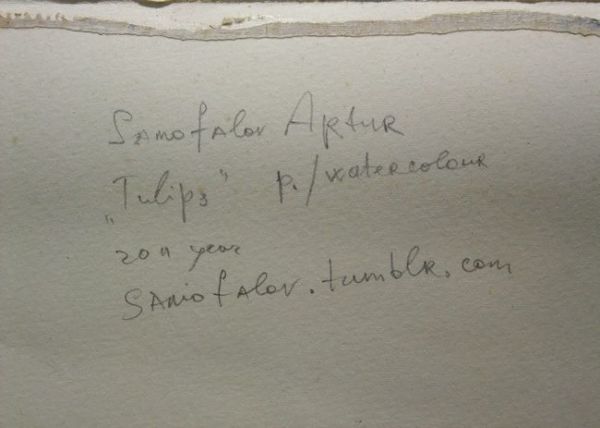 Samofalov Artur
„Tulips" p./watercolour
2011 year
samofalov.tumblr.com